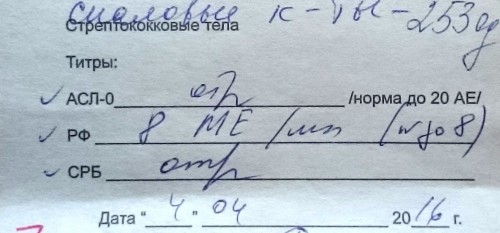 сиаловые к-ты - 253 ед
Стрептококковые тела
Титры:
✓ АСЛ-0 отр /норма до 20 АЕ/
✓ РФ 8 МЕ/мл (N до 8)
✓ СРБ отр
Дата “ 4 ” 04 2016 г.